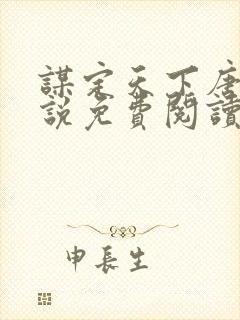 謀定天下唐
說免費閱讀
申長生